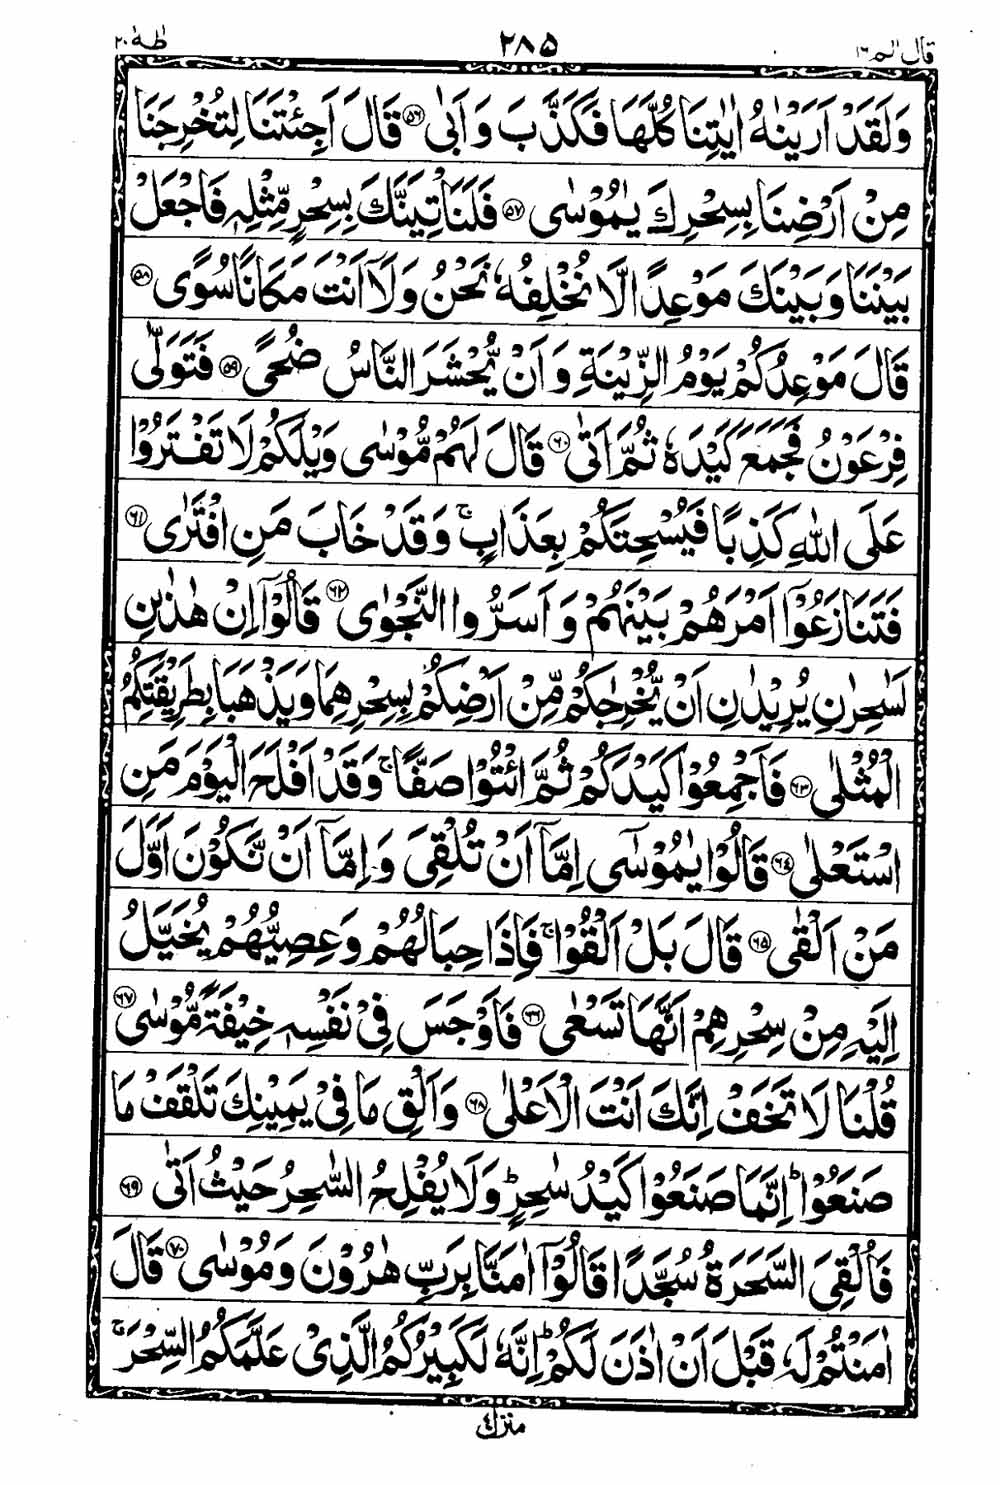 قال الم ١٦ ٢٨٥ طٰهٰ ٢٠
وَلَقَدْ اَرَيْنٰهُ اٰيٰتِنَا كُلَّهَا فَكَذَّبَ وَاَبٰى ۝٥٦ قَالَ اَجِئْتَنَا لِتُخْرِجَنَا
مِنْ اَرْضِنَا بِسِحْرِكَ يٰمُوْسٰى ۝٥٧ فَلَنَاْتِيَنَّكَ بِسِحْرٍ مِّثْلِهٖ فَاجْعَلْ
بَيْنَنَا وَبَيْنَكَ مَوْعِدًا لَّا نُخْلِفُهٗ نَحْنُ وَلَاۤ اَنْتَ مَكَانًا سُوًى ۝٥٨
قَالَ مَوْعِدُكُمْ يَوْمُ الزِّيْنَةِ وَاَنْ يُّحْشَرَ النَّاسُ ضُحًى ۝٥٩ فَتَوَلّٰى
فِرْعَوْنُ فَجَمَعَ كَيْدَهٗ ثُمَّ اَتٰى ۝٦٠ قَالَ لَهُمْ مُّوْسٰى وَيْلَكُمْ لَا تَفْتَرُوْا
عَلَى اللّٰهِ كَذِبًا فَيُسْحِتَكُمْ بِعَذَابٍ ۚ وَقَدْ خَابَ مَنِ افْتَرٰى ۝٦١
فَتَنَازَعُوْۤا اَمْرَهُمْ بَيْنَهُمْ وَاَسَرُّوا النَّجْوٰى ۝٦٢ قَالُوْۤا اِنْ هٰذٰىنِ
لَسٰحِرٰنِ يُرِيْدٰنِ اَنْ يُّخْرِجٰكُمْ مِّنْ اَرْضِكُمْ بِسِحْرِهِمَا وَيَذْهَبَا بِطَرِيْقَتِكُمُ
الْمُثْلٰى ۝٦٣ فَاَجْمِعُوْا كَيْدَكُمْ ثُمَّ ائْتُوْا صَفًّا ۚ وَقَدْ اَفْلَحَ الْيَوْمَ مَنِ
اسْتَعْلٰى ۝٦٤ قَالُوْا يٰمُوْسٰۤى اِمَّاۤ اَنْ تُلْقِىَ وَاِمَّاۤ اَنْ نَّكُوْنَ اَوَّلَ
مَنْ اَلْقٰى ۝٦٥ قَالَ بَلْ اَلْقُوْا ۚ فَاِذَا حِبَالُهُمْ وَعِصِيُّهُمْ يُخَيَّلُ
اِلَيْهِ مِنْ سِحْرِهِمْ اَنَّهَا تَسْعٰى ۝٦٦ فَاَوْجَسَ فِىْ نَفْسِهٖ خِيْفَةً مُّوْسٰى ۝٦٧
قُلْنَا لَا تَخَفْ اِنَّكَ اَنْتَ الْاَعْلٰى ۝٦٨ وَاَلْقِ مَا فِىْ يَمِيْنِكَ تَلْقَفْ مَا
صَنَعُوْا ؕ اِنَّمَا صَنَعُوْا كَيْدُ سٰحِرٍ ؕ وَلَا يُفْلِحُ السَّاحِرُ حَيْثُ اَتٰى ۝٦٩
فَاُلْقِىَ السَّحَرَةُ سُجَّدًا قَالُوْۤا اٰمَنَّا بِرَبِّ هٰرُوْنَ وَمُوْسٰى ۝٧٠ قَالَ
اٰمَنْتُمْ لَهٗ قَبْلَ اَنْ اٰذَنَ لَكُمْ ؕ اِنَّهٗ لَكَبِيْرُكُمُ الَّذِىْ عَلَّمَكُمُ السِّحْرَ ۚ
منزل ٤